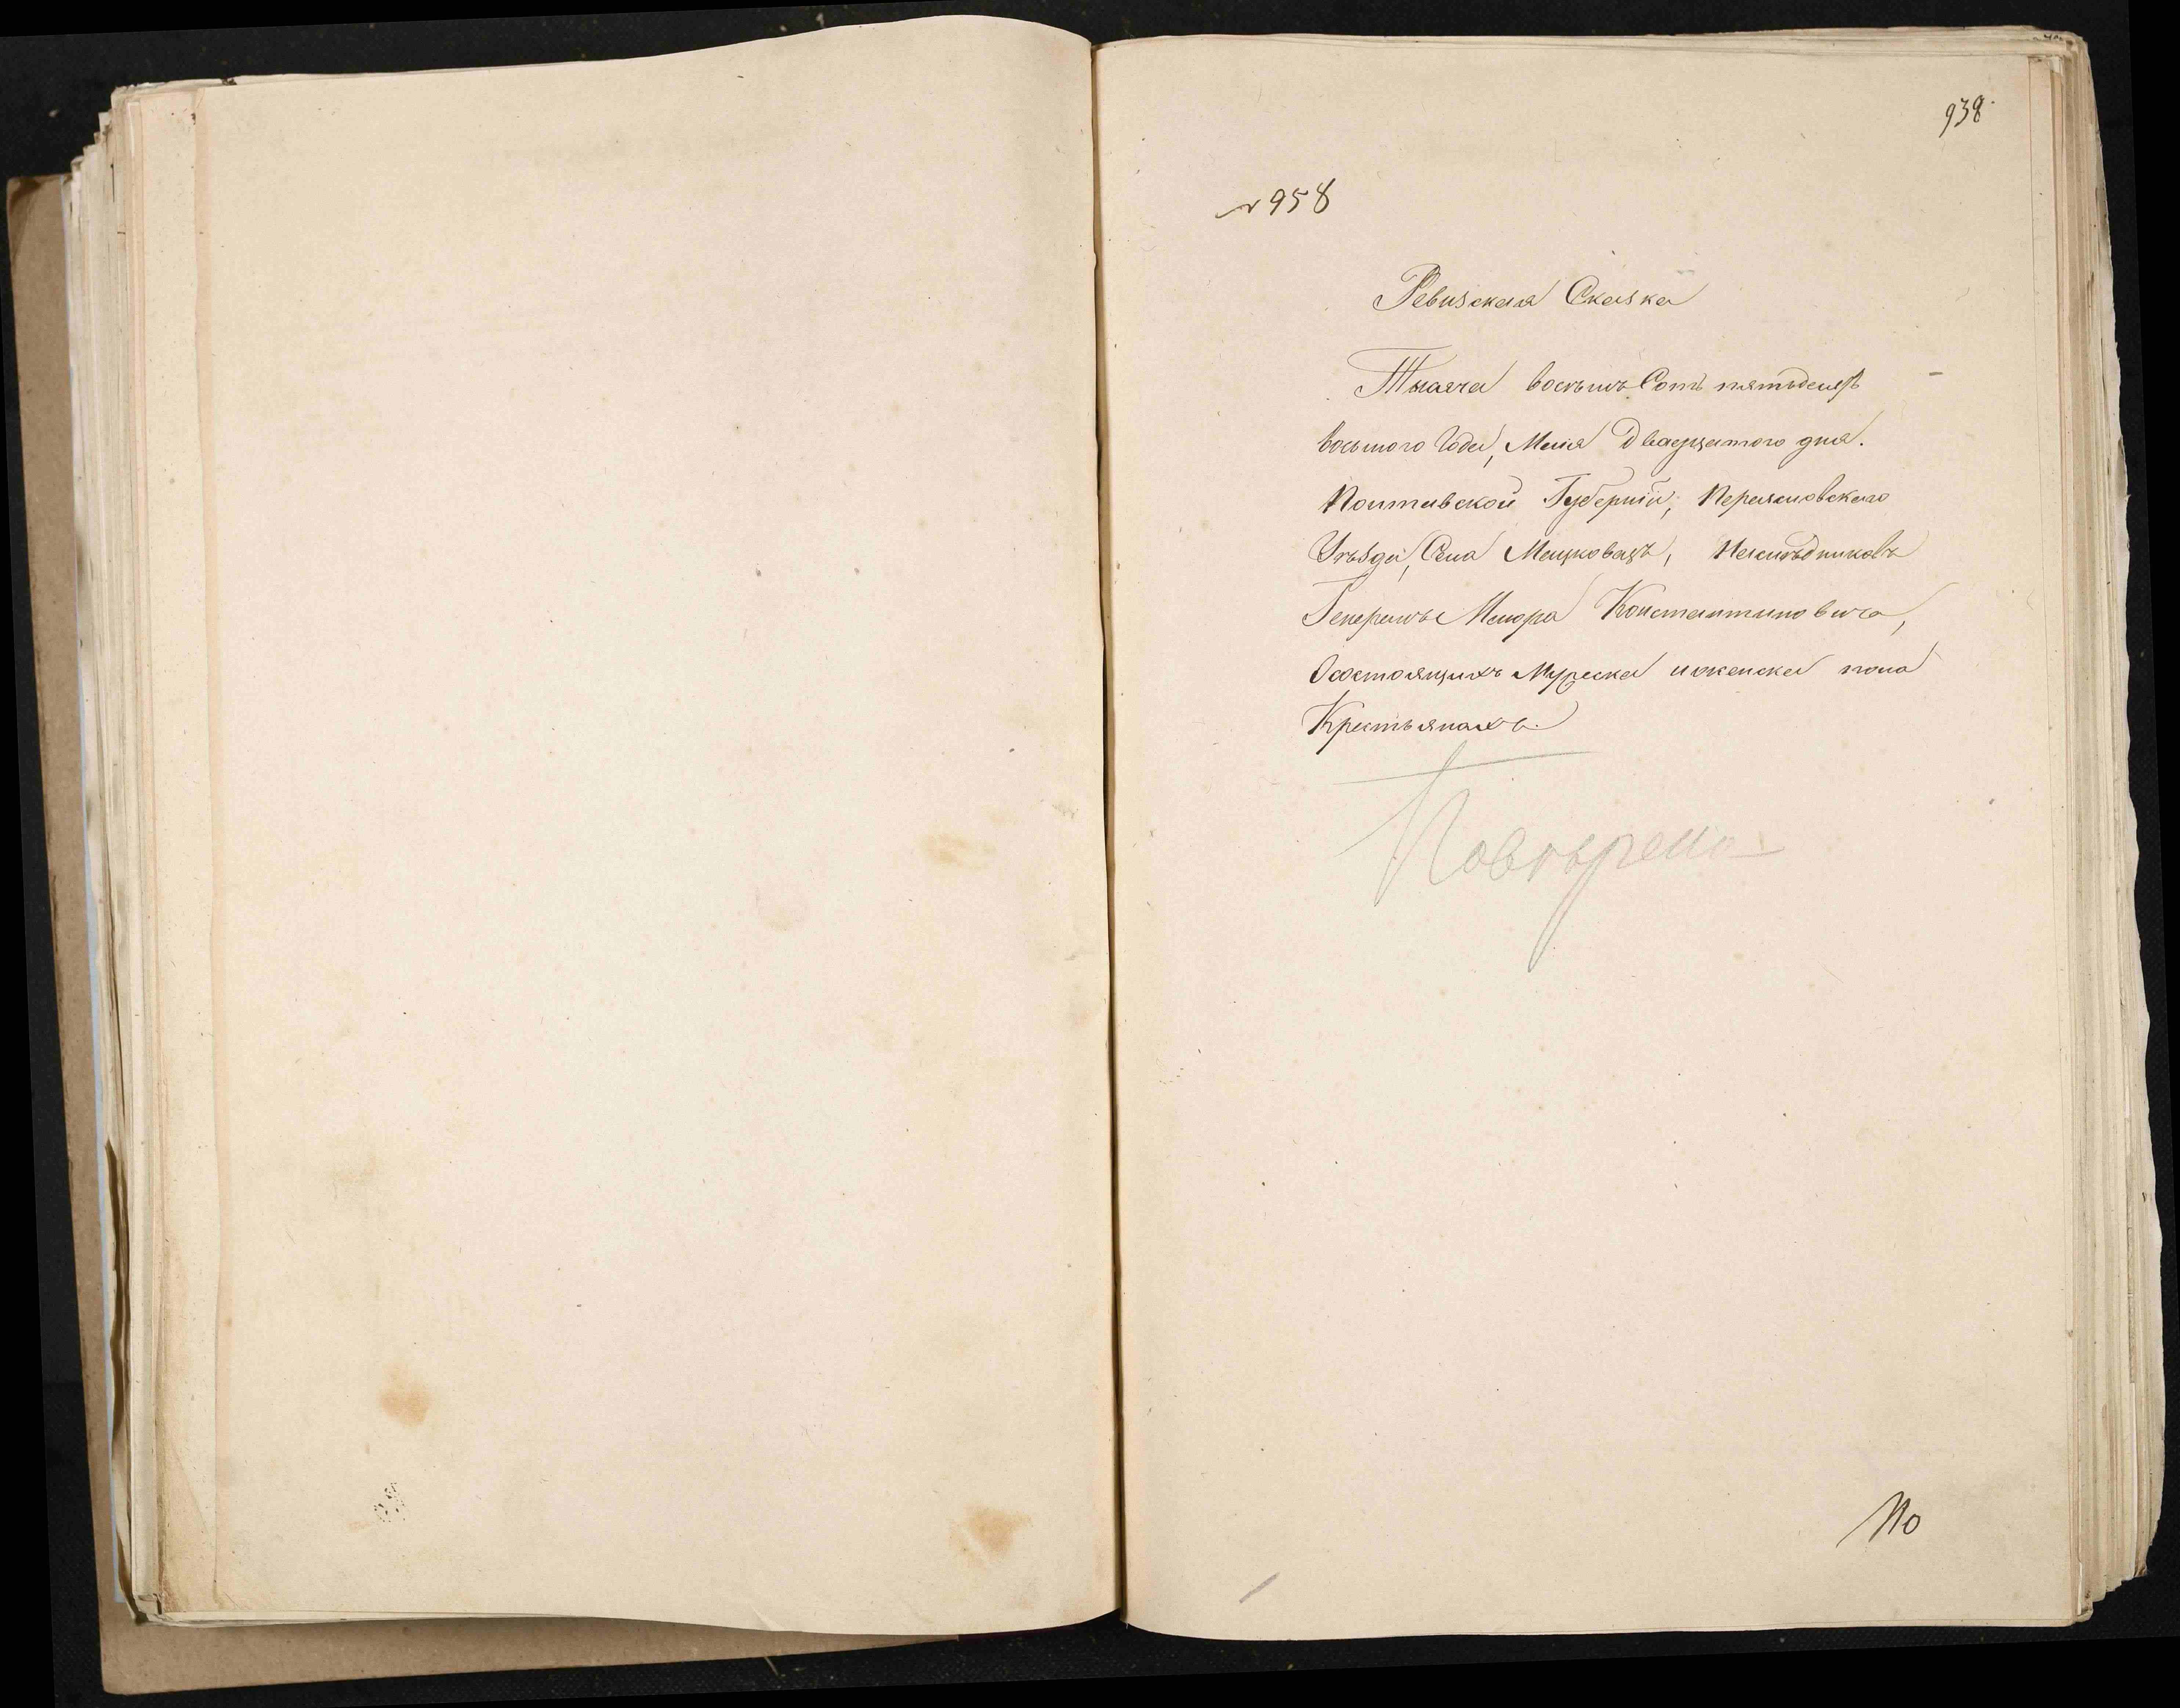 938.
№ 958
Ревизская Сказка
Тысяча восѣмъ Сотъ пятьдесятъ
восьмого Года, Мая двадцатого дня.
Полтавской Губерніи, Переяславскаго
Уѣзда, Села Мацковецъ, Наслѣдниковъ
Генералъ Маіора Константиновича,
О состоящихъ Мужеска и женска пола
Крестьянахъ.
Повѣрена
По